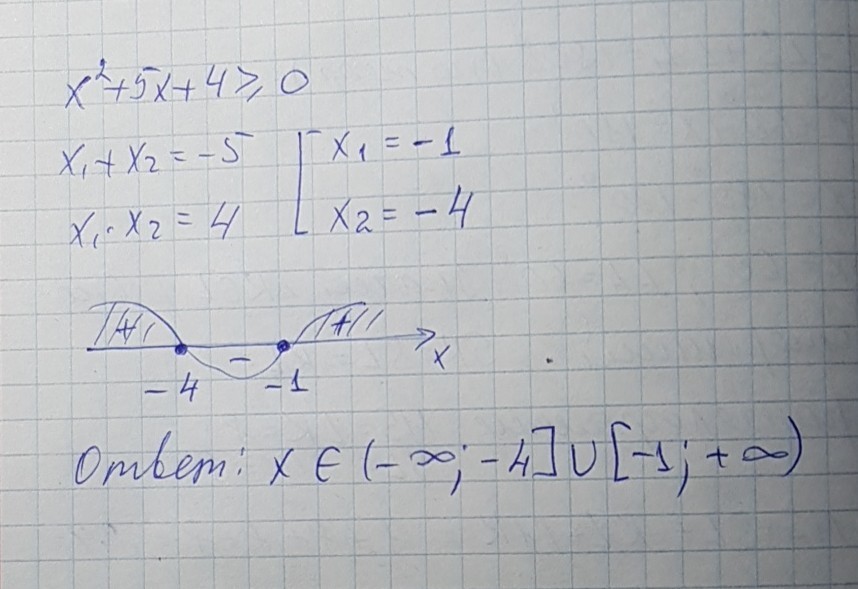 x²+5x+4⩾0
x₁+x₂=-5 [ x₁=-1
x₁·x₂=4 x₂=-4
+ - + x
-4 -1
Ответ: x∈(-∞;-4]∪[-1;+∞)